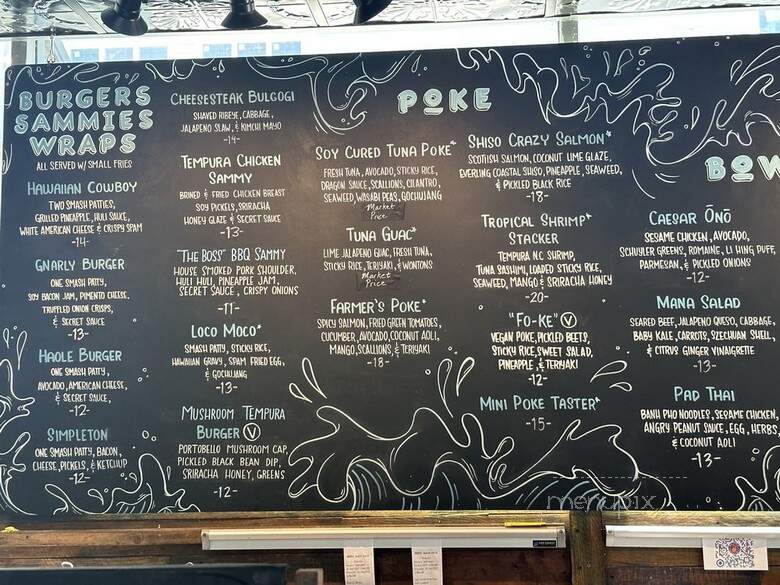 BURGERS
SAMMIES
WRAPS
ALL SERVED W/ SMALL FRIES
HAWAIIAN COWBOY
TWO SMASH PATTIES,
GRILLED PINEAPPLE, HULI SAUCE,
WHITE AMERICAN CHEESE & CRISPY SPAM
-14-
GNARLY BURGER
ONE SMASH PATTY,
SOY BACON JAM, PIMENTO CHEESE,
TRUFFLED ONION CRISPS,
& SECRET SAUCE
-13-
HAOLE BURGER
ONE SMASH PATTY,
AVOCADO, AMERICAN CHEESE,
& SECRET SAUCE,
-12-
SIMPLETON
ONE SMASH PATTY, BACON,
CHEESE, PICKELS, & KETCHUP
-12-
CHEESESTEAK BULGOGI
SHAVED RIBEYE, CABBAGE,
JALAPENO SLAW, & KIMCHI MAYO
-14-
TEMPURA CHICKEN
SAMMY
BRINED & FRIED CHICKEN BREAST
SOY PICKELS, SRIRACHA
HONEY GLAZE & SECRET SAUCE
-13-
"THE BOSS" BBQ SAMMY
HOUSE SMOKED PORK SHOULDER,
HULI HULI, PINEAPPLE JAM,
SECRET SAUCE, CRISPY ONIONS
-11-
LOCO MOCO*
SMASH PATTY, STICKY RICE,
HAWAIIAN GRAVY, SPAM FRIED EGG,
& GOCHUJANG
-13-
MUSHROOM TEMPURA
BURGER Ⓥ
PORTOBELLO MUSHROOM CAP,
PICKLED BLACK BEAN DIP,
SRIRACHA HONEY, GREENS
-12-
POKE
SOY CURED TUNA POKE*
FRESH TUNA, AVOCADO, STICKY RICE,
DRAGON SAUCE, SCALLIONS, CILANTRO,
SEAWEED, WASABI PEAS, GOCHUJANG
Market
Price
TUNA GUAC*
LIME JALAPENO GUAC, FRESH TUNA,
STICKY RICE, TERIYAKI, & WONTONS
Market
Price
FARMER'S POKE*
SPICY SALMON, FRIED GREEN TOMATOES,
CUCUMBER, AVOCADO, COCONUT AOLI,
MANGO, SCALLIONS, & TERIYAKI
-18-
SHISO CRAZY SALMON*
SCOTISH SALMON, COCONUT LIME GLAZE,
EVERLING COASTAL SHISO, PINEAPPLE, SEAWEED,
& PICKLED BLACK RICE
-18-
TROPICAL SHRIMP*
STACKER
TEMPURA NC SHRIMP,
TUNA SASHIMI, LOADED STICKY RICE,
SEAWEED, MANGO & SRIRACHA HONEY
-20-
"FO-KE" Ⓥ
VEGAN POKE, PICKLED BEETS,
STICKY RICE, SWEET SALAD,
PINEAPPLE, & TERIYAKI
-12-
MINI POKE TASTER*
-15-
BOW
CAESAR ŌNŌ
SESAME CHICKEN, AVOCADO,
SCHUYLER GREENS, ROMAINE, LI HING PUFF,
PARMESAN, & PICKLED ONIONS
-12-
MANA SALAD
SEARED BEEF, JALAPENO QUESO, CABBAGE,
BABY KALE, CARROTS, SZECHUAN SHELL,
& CITRUS GINGER VINAIGRETTE
-13-
PAD THAI
BANH PHO NOODLES, SESAME CHICKEN,
ANGRY PEANUT SAUCE, EGG, HERBS,
& COCONUT AOLI
-13-
menupix